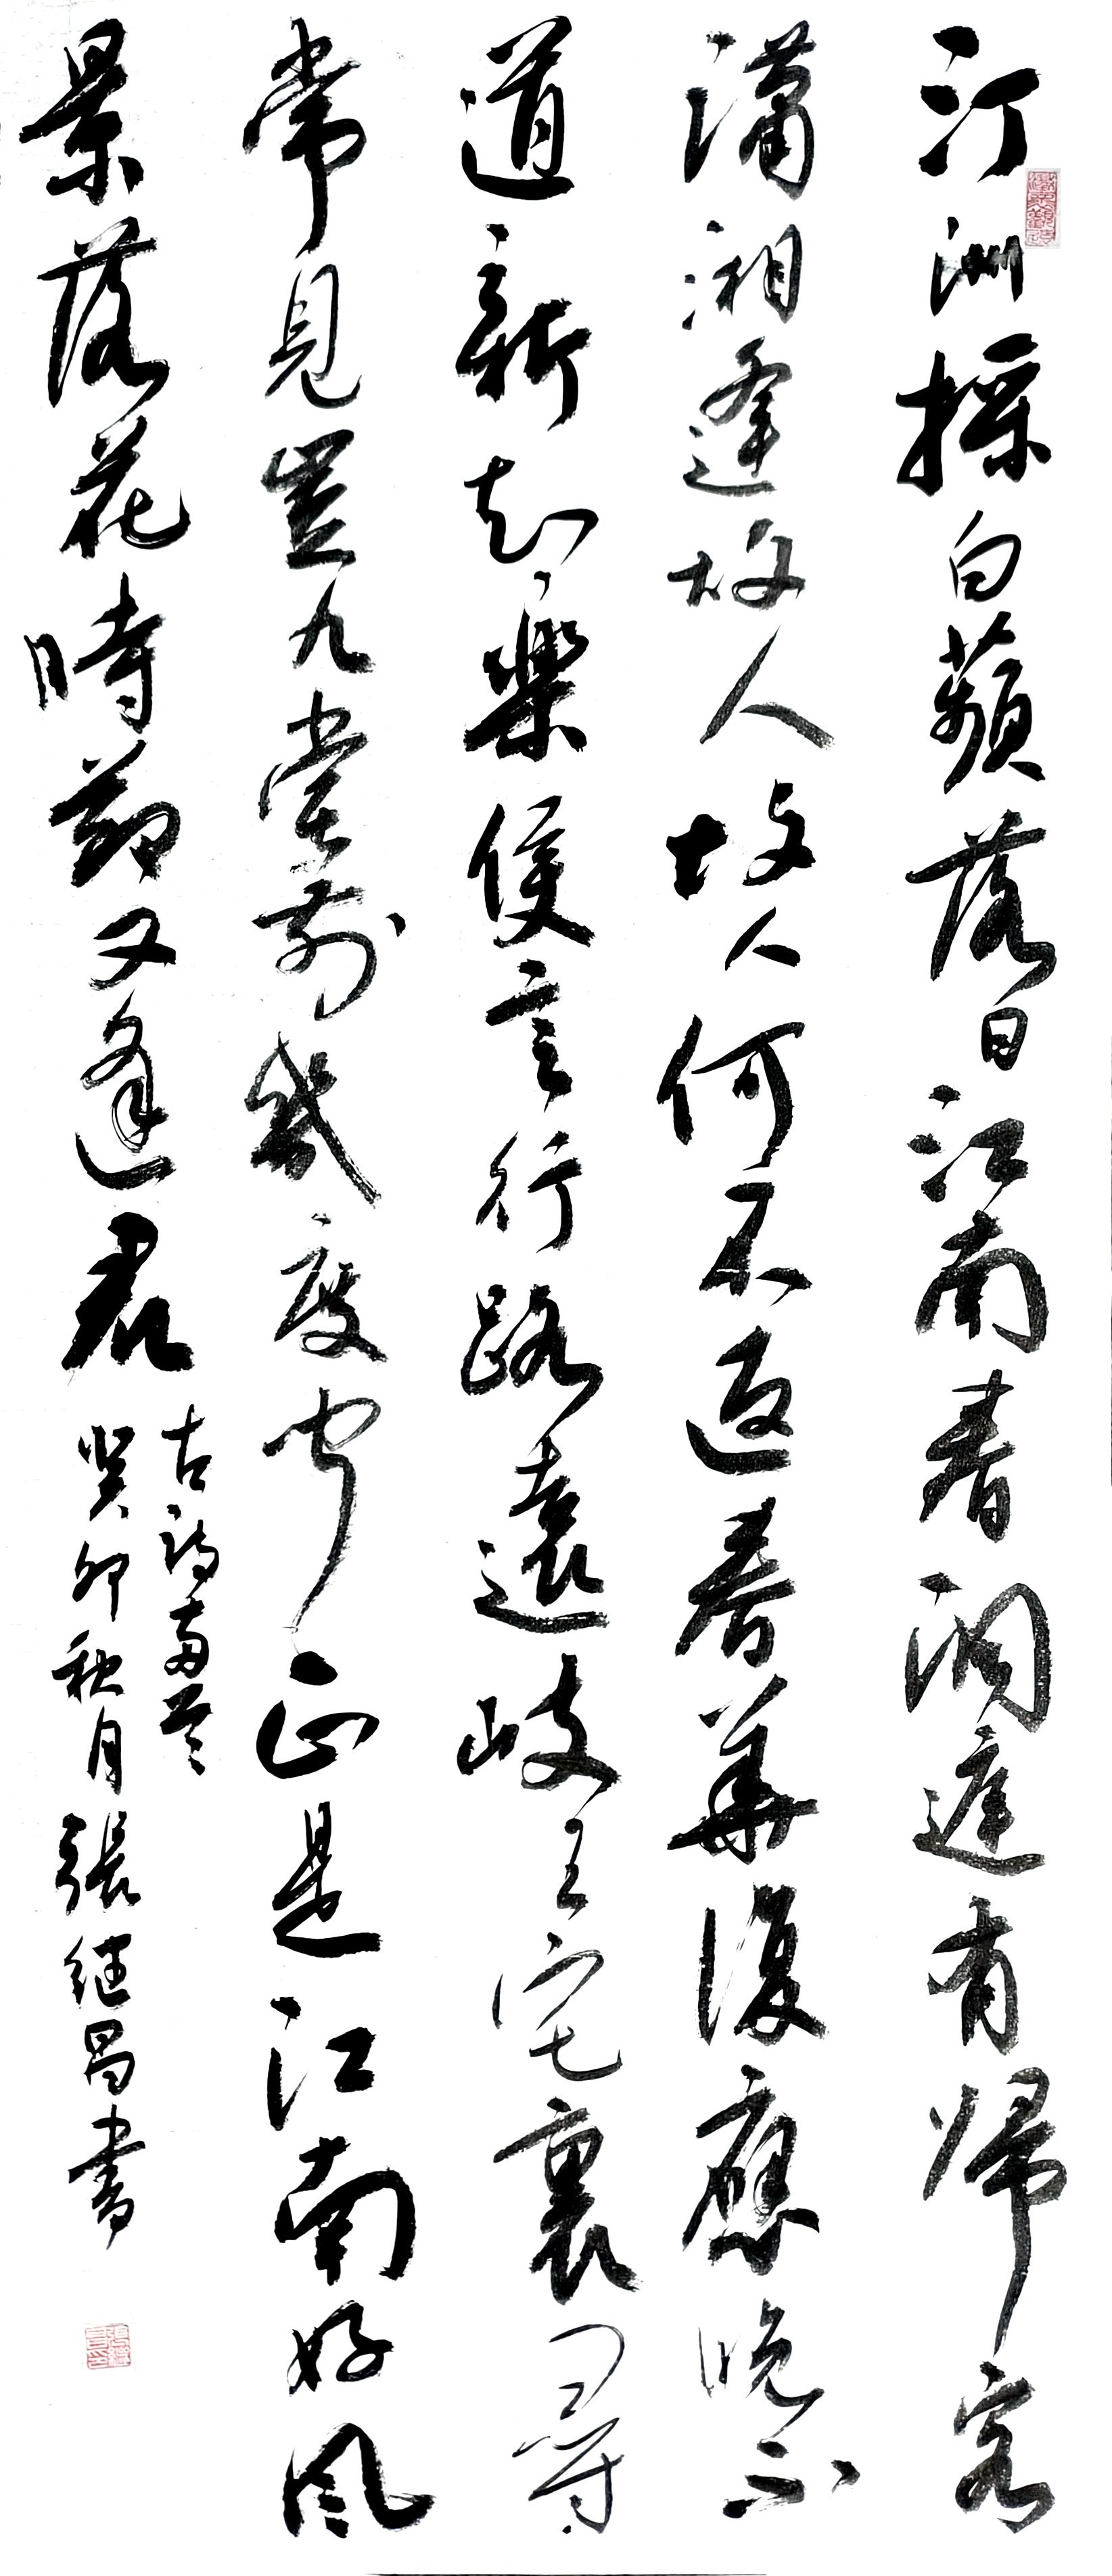 汀洲採白蘋落日江南春洞庭有歸客
瀟湘逢故人故人何不返春華復應晚不
道新知樂侯言行路遠岐王宅裏尋
常見崔九堂前幾度聞正是江南好風
景落花時節又逢君
古詩兩首
癸卯秋月張继昌書